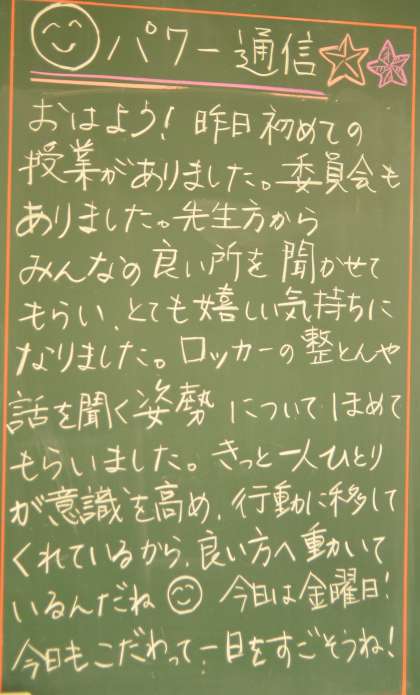 パワー通信
おはよう！昨日初めての
授業がありました。委員会も
ありました。先生方から
みんなの良い所を聞かせて
もらい、とても嬉しい気持ちに
なりました。ロッカーの整とんや
話を聞く姿勢についてほめて
もらいました。きっと一人ひとり
が意識を高め、行動に移して
くれているから、良い方へ動いて
いるんだね 今日は金曜日！
今日もこだわって、一日をすごそうね！